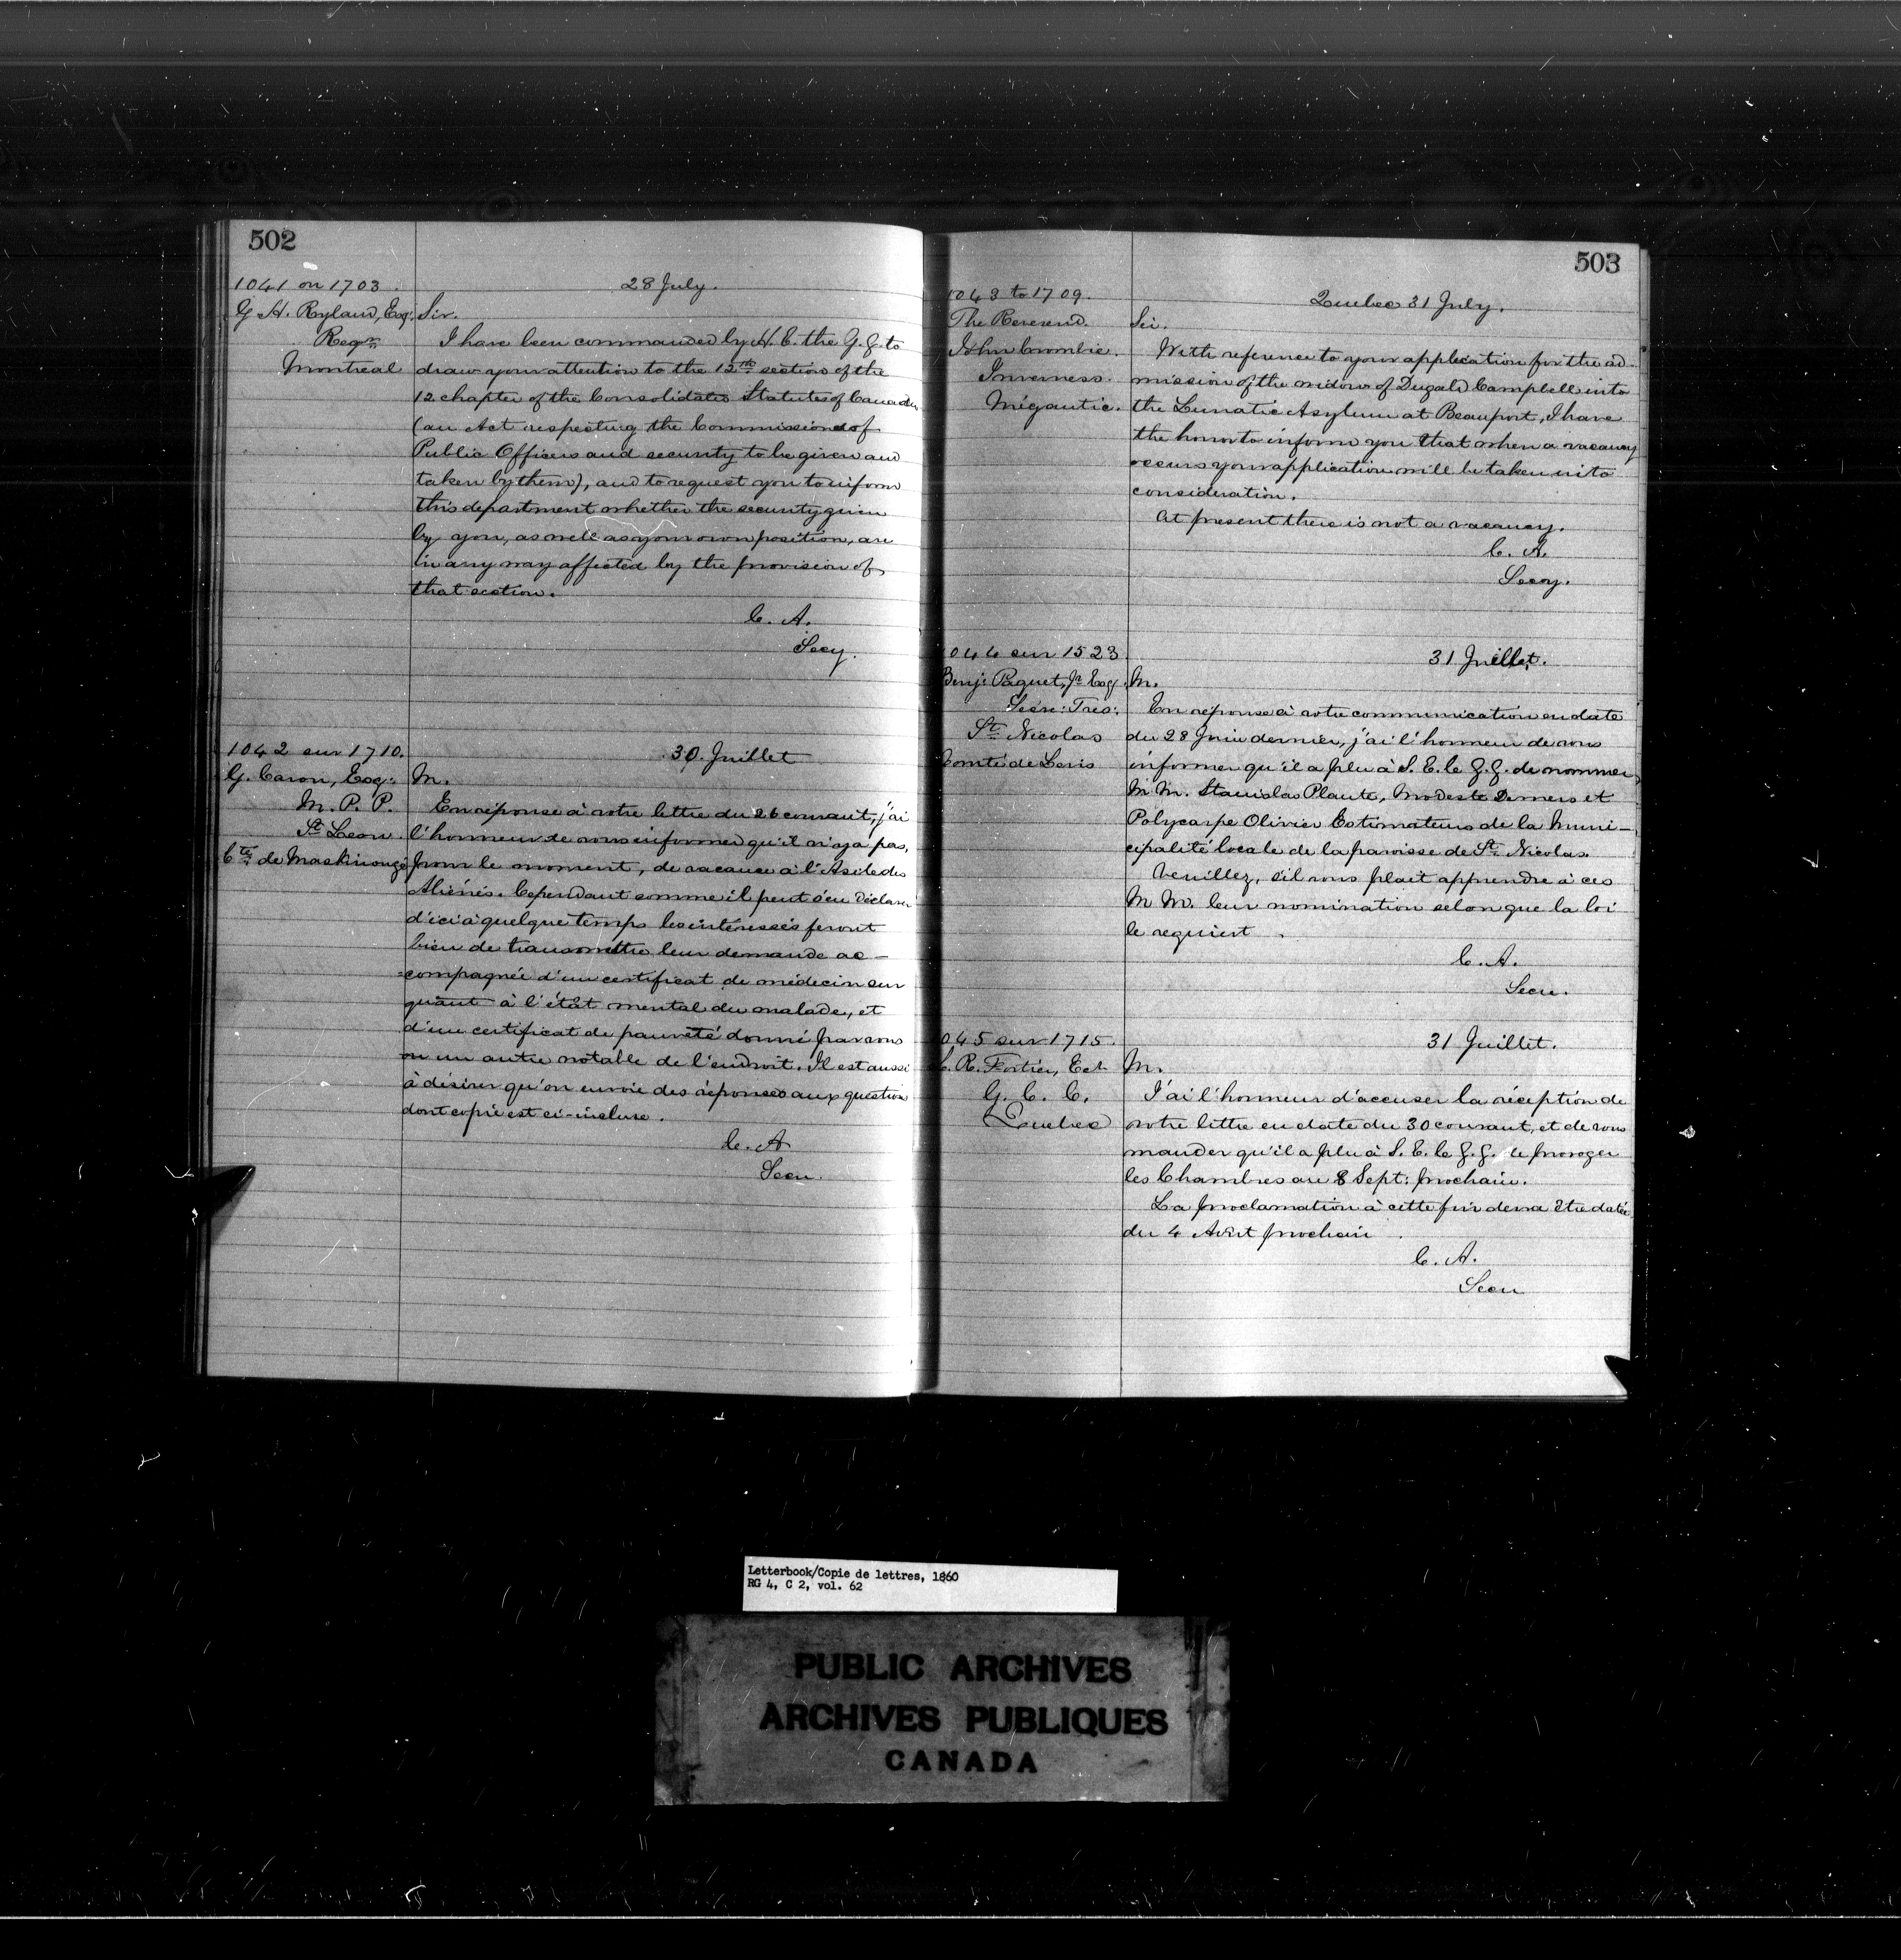 502
1041 on 1703.
G. H. Ryland, Esq:
Regr.
Montreal
28 July.
Sir.
I have been commanded by H. E. the G. G. to
draw your attention to the 12th section of the
12 chapter of the Consolidated Statutes of Canada
(an Act respecting the Commissions of
Public Officers and security to be given and
taken by them), and to request you to inform
this department whether the security given
by you, as well as your own position, are
in any way affected by the provision of
that section.
C. A.
Secy.
1042 sur 1710.
G. Caron, Esq:
M. P. P.
St Leon.
Cté de Maskinongé
30. Juillet
M.
En réponse à votre lettre du 26 courant, j'ai
l'honneur de vous informer qu'il n'y a pas,
pour le moment, de vacance à l'Asile des
Aliénés. Cependant comme il peut s'en déclarer
d'ici à quelque temps les intéressés feront
bien de transmettre leur demande ac-
=compagnée d'un certificat de médecin sur
quant à l'état mental du malade, et
d'un certificat de pauvreté donné par vous
ou un autre notable de l'endroit. Il est aussi
à désirer qu'on envoie des réponses aux question
dont copie est ci-incluse.
C. A
Secr.
503
1043 to 1709.
The Reverend.
John Crombie.
Inverness.
Mégantic.
Quebec 31 July.
Sir.
With reference to your application for the ad-
mission of the widow of Dugald Campbell into
the Lunatic Asylum at Beauport, I have
the honor to inform you that when a vacancy
occurs your application will be taken into
consideration.
At present there is not a vacancy.
C. A.
Secy.
044 sur 1523
Benj: Paquet, Jr Esq.
Secre: Tres:
St. Nicolas
Comté de Levis
31 Juillet.
M.
En réponse à votre communication en date
du 28 Juin dernier, j'ai l'honneur de vous
informer qu'il a plu à S. E. le G. G. de nommer
M M. Stanislas Plante, Modeste Demers et
Polycarpe Olivier Estimateurs de la Muni-
cipalité locale de la paroisse de St. Nicolas.
Veuillez, s'il vous plait apprendre à ces
M M. leur nomination selon que la loi
le requiert.
C. A.
Secr.
045 sur 1715.
R. Fortier, Ecr
G. C. C.
Quebec
31 Juillet.
M.
J'ai l'honneur d'accuser la réception de
votre lettre en date du 30 courant, et de vous
mander qu'il a plu à S. E. le G. G. de proroger
les Chambres au 8 Sept: prochain.
La proclamation à cette fin devra être datée
du 4 Août prochain.
C. A.
Secr
Letterbook/Copie de lettres, 1860
RG 4, C 2, vol. 62
PUBLIC ARCHIVES
ARCHIVES PUBLIQUES
CANADA